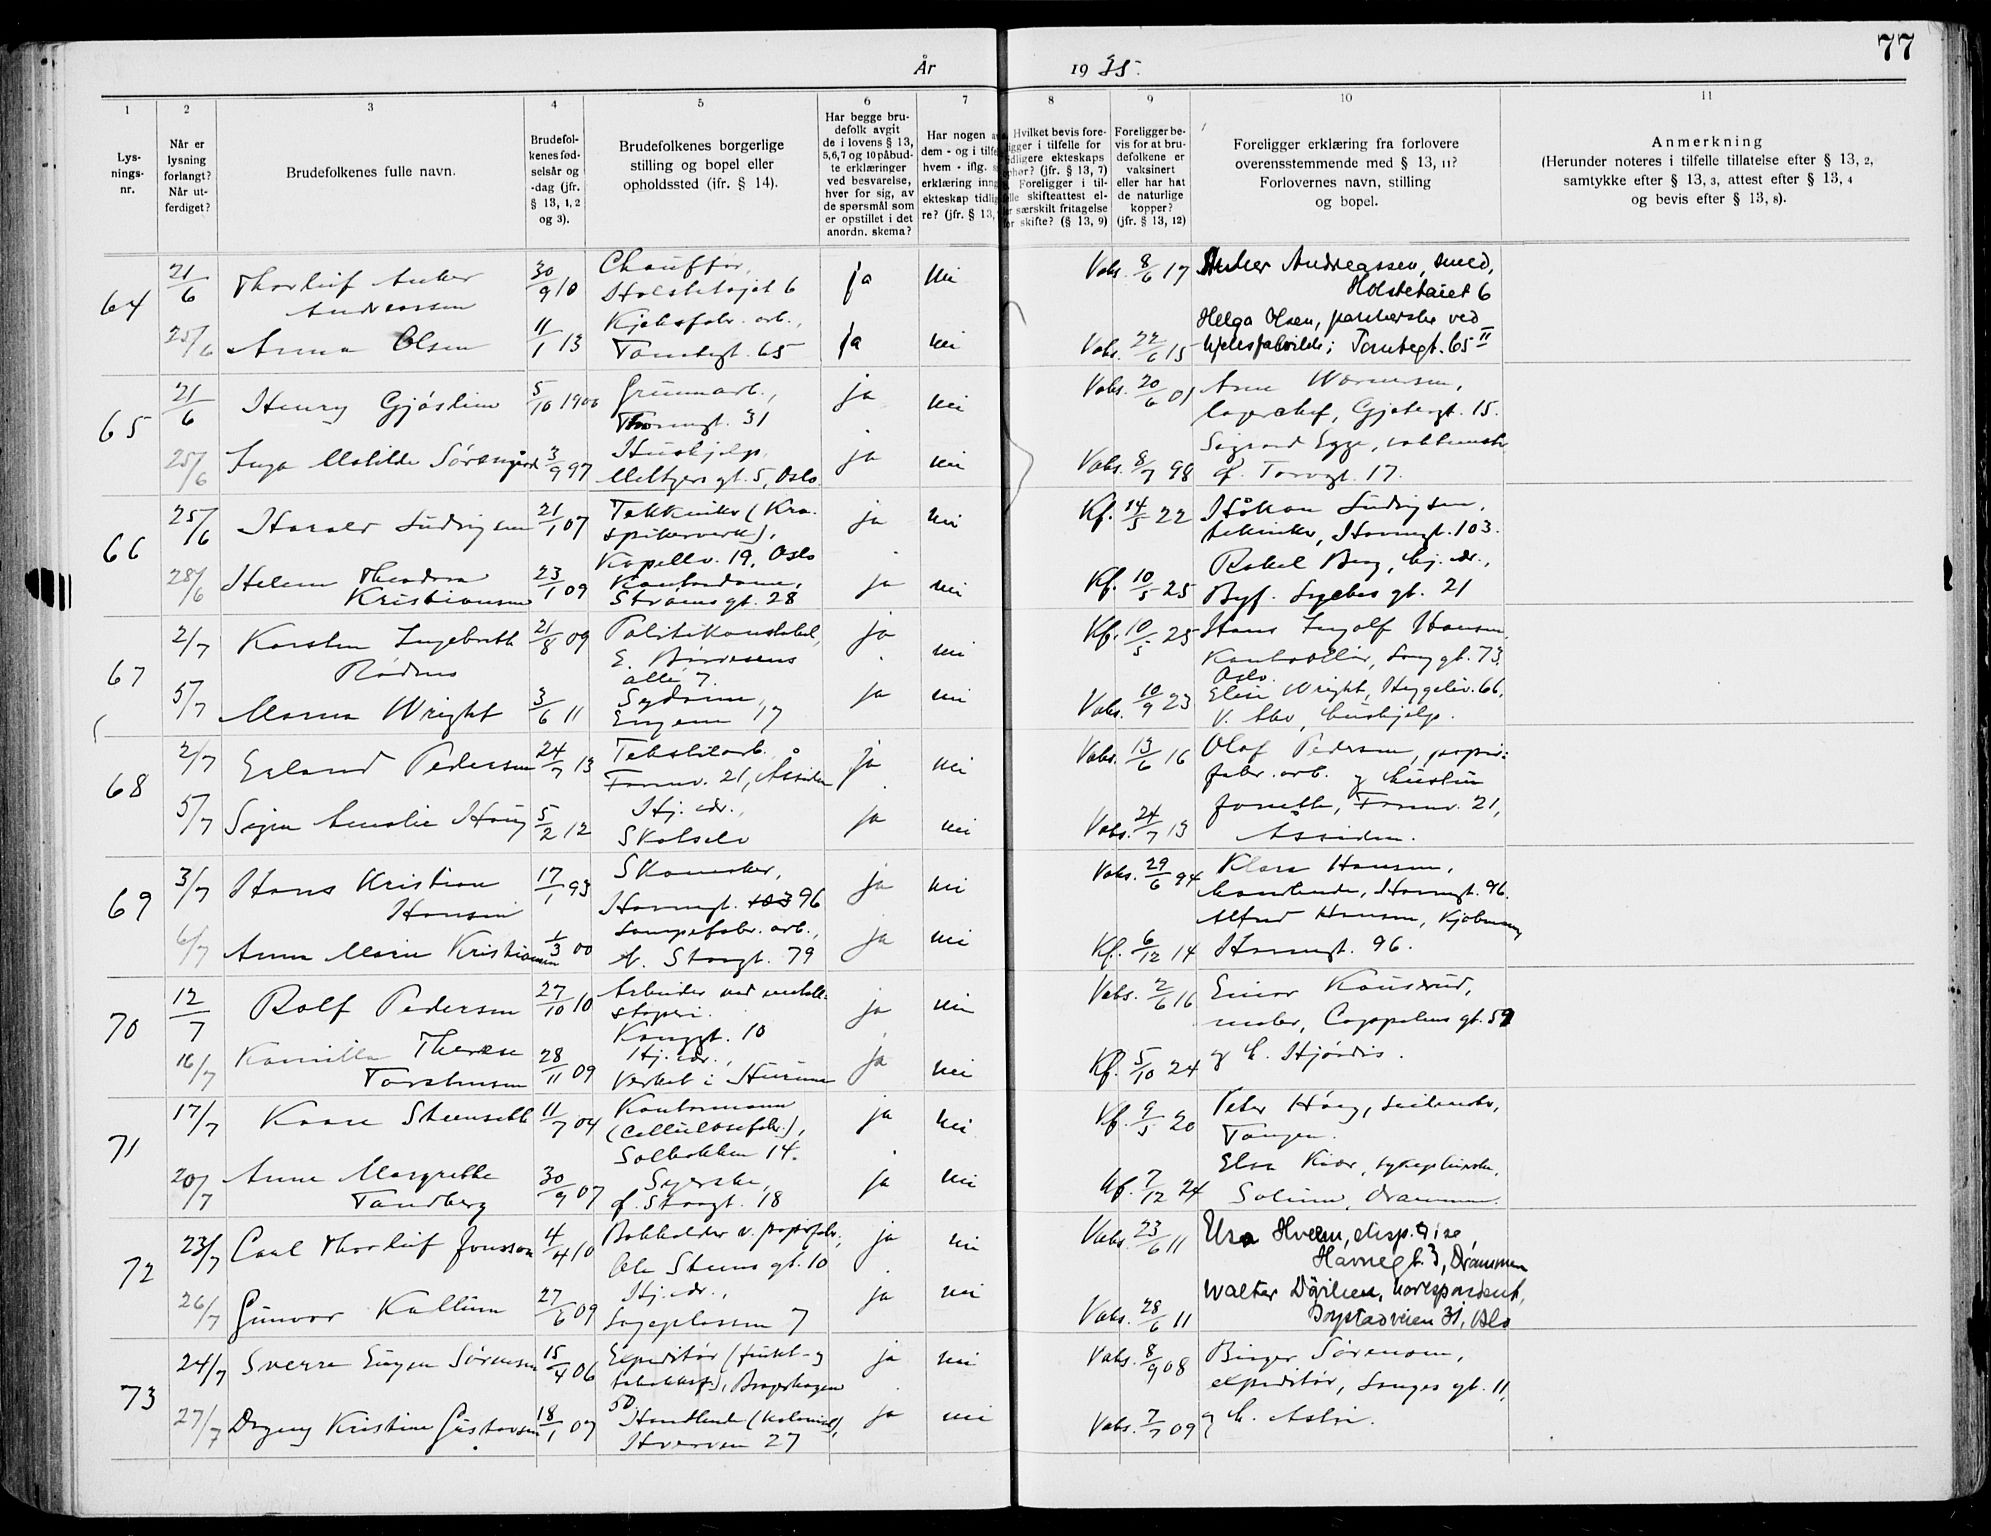 77
År 1935.
1 2 3 4 5 6 7 8 9 10 11
Lys-
nings-
nr.
Når er
lysning
forlangt?
Når ut-
ferdiget?
Brudefolkenes fulle navn.
Brudefol-
kenes fød-
selsår og
-dag (jfr.
§ 13, 1, 2
og 3).
Brudefolkenes borgerlige
stilling og bopel eller
opholdssted (jfr. § 14).
Har begge bru-
defolk avgit
de i lovens § 13,
5,6,7 og 10 påbud-
te erklæringer
ved besvarelse,
hver for sig, av
de spørsmål som
er opstillet i det
anordn. skema?
Har nogen
dem - og i tilfe
hvem - iflg.
erklæring inng
ekteskap tidlig
re? (jfr. § 13,
Hvilket bevis fore-
ligger i tilfelle for
tidligere ekteskaps
ophør? (jfr. § 13, 7)
Foreligger i til-
felle skifteattest el-
ler særskilt fritagelse
for skifte? (§ 13, 9)
Foreligger be-
vis for at bru-
defolkene er
vaksinert
eller har hat
de naturlige
kopper?
(jfr. § 13, 12)
Foreligger erklæring fra forlovere
overensstemmende med § 13, 11?
Forlovernes navn, stilling
og bopel.
Anmerkning
(Herunder noteres i tilfelle tillatelse efter § 13, 2,
samtykke efter § 13, 3, attest efter § 13, 4
og bevis efter § 13, 8).
64 21/6 Thorleif Anker 30/9 10 Chauffør, ja nei Vaks. 8/6 17 Anker Andreassen, smed,
Andreassen Holstetajet 6 Holstetaiet 6
25/6 Anna Olsen 11/1 13 Kjeksfabr. arb., ja nei Vaks. 22/6 15 Helga Olsen, pakkerske ved
Tomtegt. 65 kjeksfabrikk; Tomtegt. 65 II
65 21/6 Henry Gjøstein 5/10 1900 31 ja nei Vaks. 20/6 01 Arne
lagerchef, Gjetergt. 15.
25/6 Inga Matilde Sørensgård 3/9 97 Hushjelp, ja nei Vaks. 8/7 98 Sigurd Egge,
Meltzers gt. 5, Oslo Torvgt. 17.
66 25/6 Harald Ludvigsen 21/1 07 Tekniker (Kra. ja nei Kf. 14/5 22 Håkon Ludvigsen,
spikerverk), tekniker, Havnegt. 103.
Kapellv. 19, Oslo
28/6 Helene Theodora 23/1 09 Kontordame, ja nei Kf. 10/5 25 Rakel Berg, hj. dr.,
Kristiansen Strøms gt. 28 Byf. Syckes gt. 21
67 2/7 Karsten Ingebreth 21/8 09 Politikonstabel, ja nei Kf. 10/5 25 Hans Ingolf Hansen,
Rødnes E. Børresens Kontrollør, 73,
alle 7. Oslo.
5/7 Marna Wright 3/6 11 Sydame, ja nei Vaks. 10/9 23 Elise Wright, Hyggeliv. 66,
Engene 17 V. Aker, hushjelp.
68 2/7 Erland Pedersen 24/7 13 Tekstilarb. ja nei Vaks. 13/6 16 Olaf Pedersen, papir-
21, Åssiden fabr. arb. og hustru
5/7 Signe Amalie Haug 5/2 12 Hj. dr., ja nei Vaks. 24/7 13 Josette, 21,
Skotselv Åssiden.
69 3/7 Hans Kristian 17/1 93 Skomaker, ja nei Vaks. 29/6 94 Klara Hansen,
Hansen Havnegt. 103 96 handlende, Havnegt. 96.
6/7 Anna Marie Kristiansen 1/3 00 Lampefabr. arb., ja nei Kf. 6/12 14 Alfred Hansen, Kjøbmann,
N. Storgt. 79 Havnegt. 96.
70 12/7 Rolf Pedersen 27/10 10 Arbeider ved metall- ja nei Vaks. 2/6 16 Einar Kauserud,
støperi. maler, Cappelens gt. 59
Konggt. 10
16/7 Kamilla Therese 28/11 09 Hj. dr., ja nei Kf. 5/10 24 og h. Hjørdis.
Torstensen Verket i Hurum
71 17/7 Kaare Steenseth 11/7 04 Kontormann ja nei Kf. 9/5 20 Peter Høeg,
(Cellulosefabr.), Tangen.
Solbakken 14.
20/7 Anna Margrethe 30/9 07 Syerske, ja nei Kf. 7/12 24 Elsa Kiær, sykepleierske,
Tandberg Storgt. 18 Solum, Drammen.
72 23/7 Carl Thorleif Jonsson 4/4 10 Bokholder v. papirfabr., ja nei Vaks. 23/6 11 Elsa Hveem, ekspeditrise,
Ole Steens gt. 10 Havnegt. 3, Drammen
26/7 Gunvor Kallum 27/6 09 Hj. dr., ja nei Vaks. 28/6 11 Walter korrespondent,
Sageplassen 7 31, Oslo
73 24/7 Sverre Eugen Sørensen 15/4 06 Expeditør (frukt- og ja nei Vaks. 8/9 08 Birger Sørensen,
tobakksf.), Bragerhagen expeditør, Langes gt. 11,
50.
27/7 Dagny Kristine Gustavsen 18/1 07 Handlende (kolonial), ja nei Vaks. 7/7 09 og h. Astri.
Hverven 27